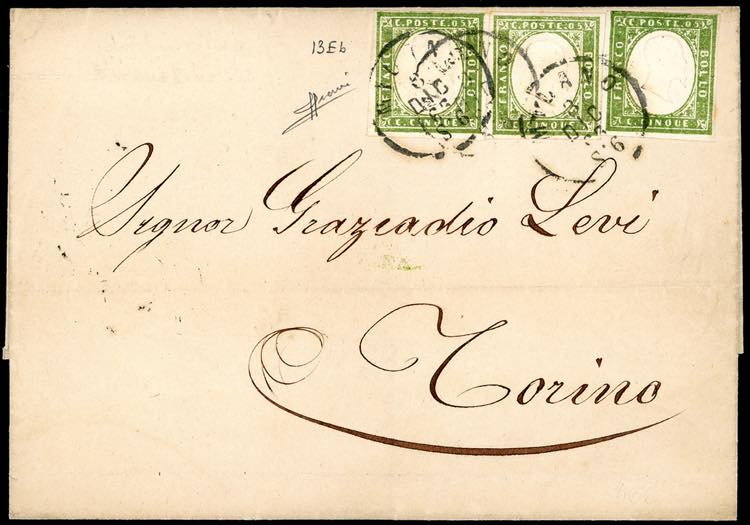 C. POSTE. 05 C. POSTE. 05 C. POSTE. 05
FRANCO BOLLO FRANCO BOLLO FRANCO BOLLO
C. CINQUE C. CINQUE C. CINQUE
MILANO
DIC
MILANO
DIC
13Eb
Signor Graziadio Levi
Torino